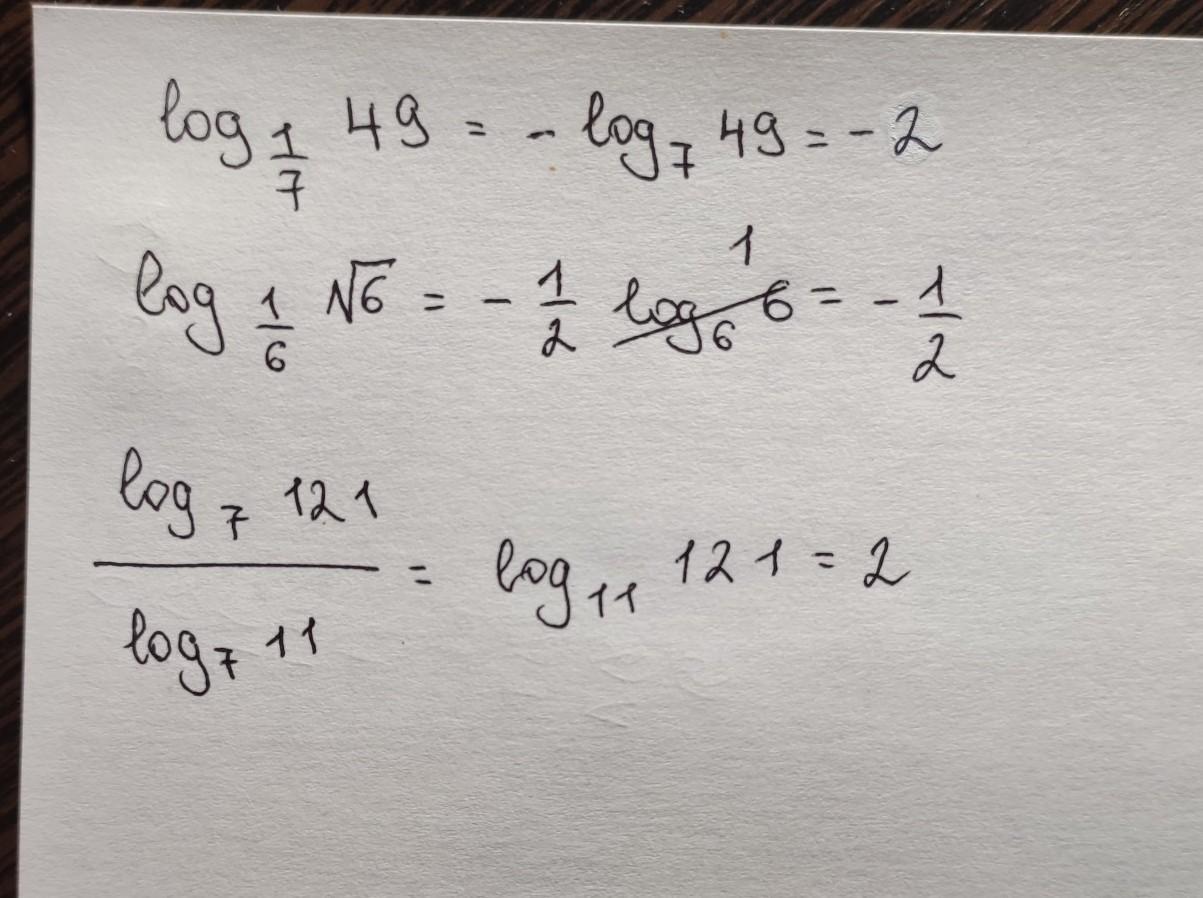 log_{1/7} 49 = - log_7 49 = - 2
log_{1/6} √6 = - 1/2 log_6 6 = - 1/2
1
log_7 121 / log_7 11 = log_{11} 121 = 2